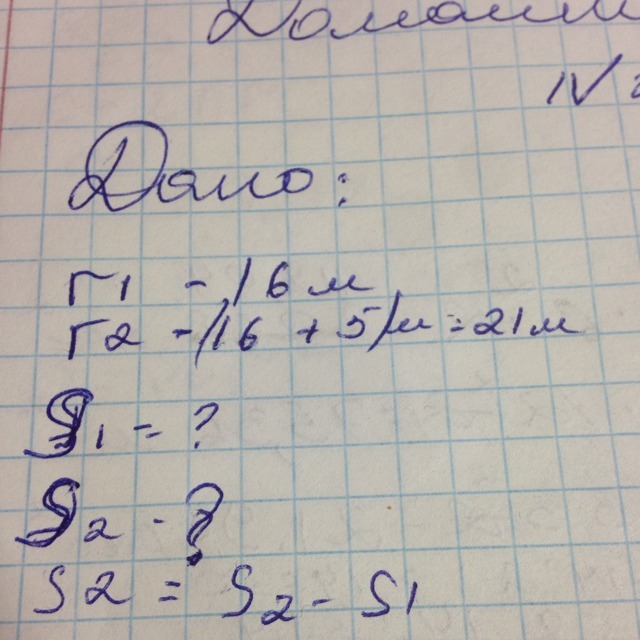 Дано:
r1 - 16 м
r2 - (16 + 5)м = 21 м
S1 = ?
S2 - ?
S2 = S2 - S1